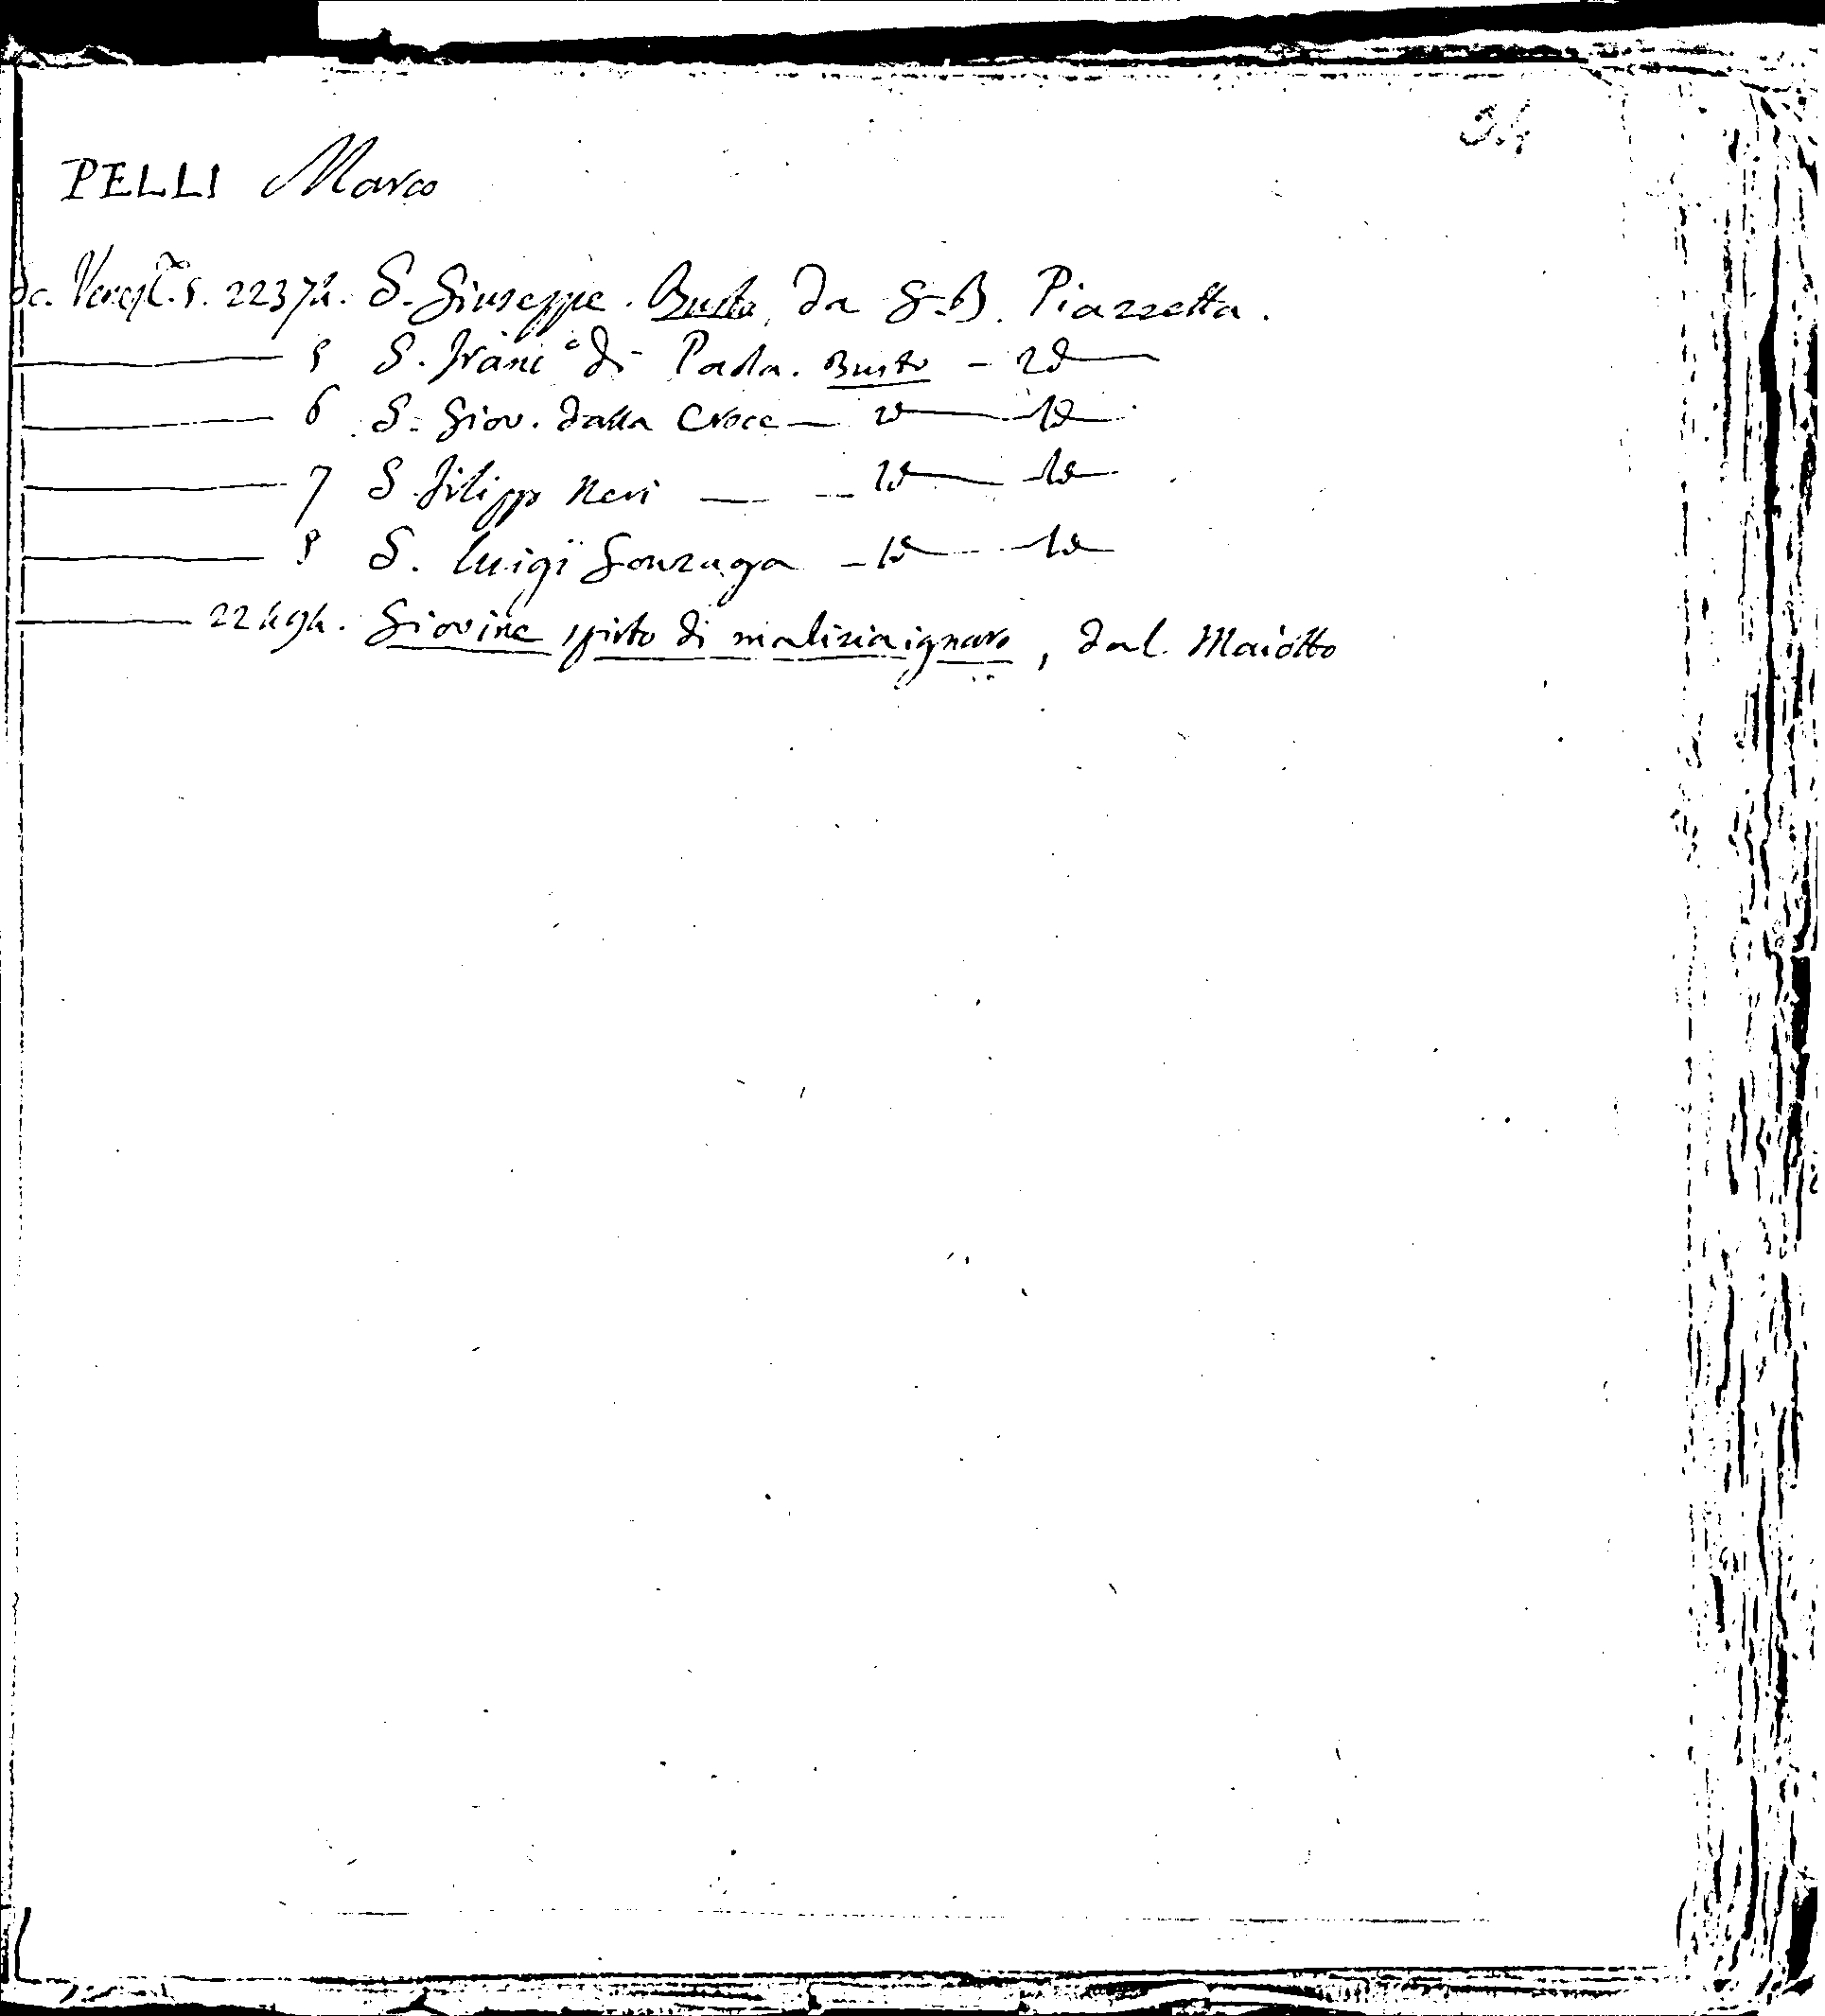 34
PELLI Marco
Sc. Venez. T. 5. 22374. S. Giuseppe. Busto, da G. B. Piazzetta.
5 S. Franc.º di Paola. Busto - id
6 S. Giov. dalla Croce — id — id
7 S. Filippo Neri — — id — id
8 S. Luigi Gonzaga — id — id
22494. Giovine spirto di malizia ignaro, dal Maiotto